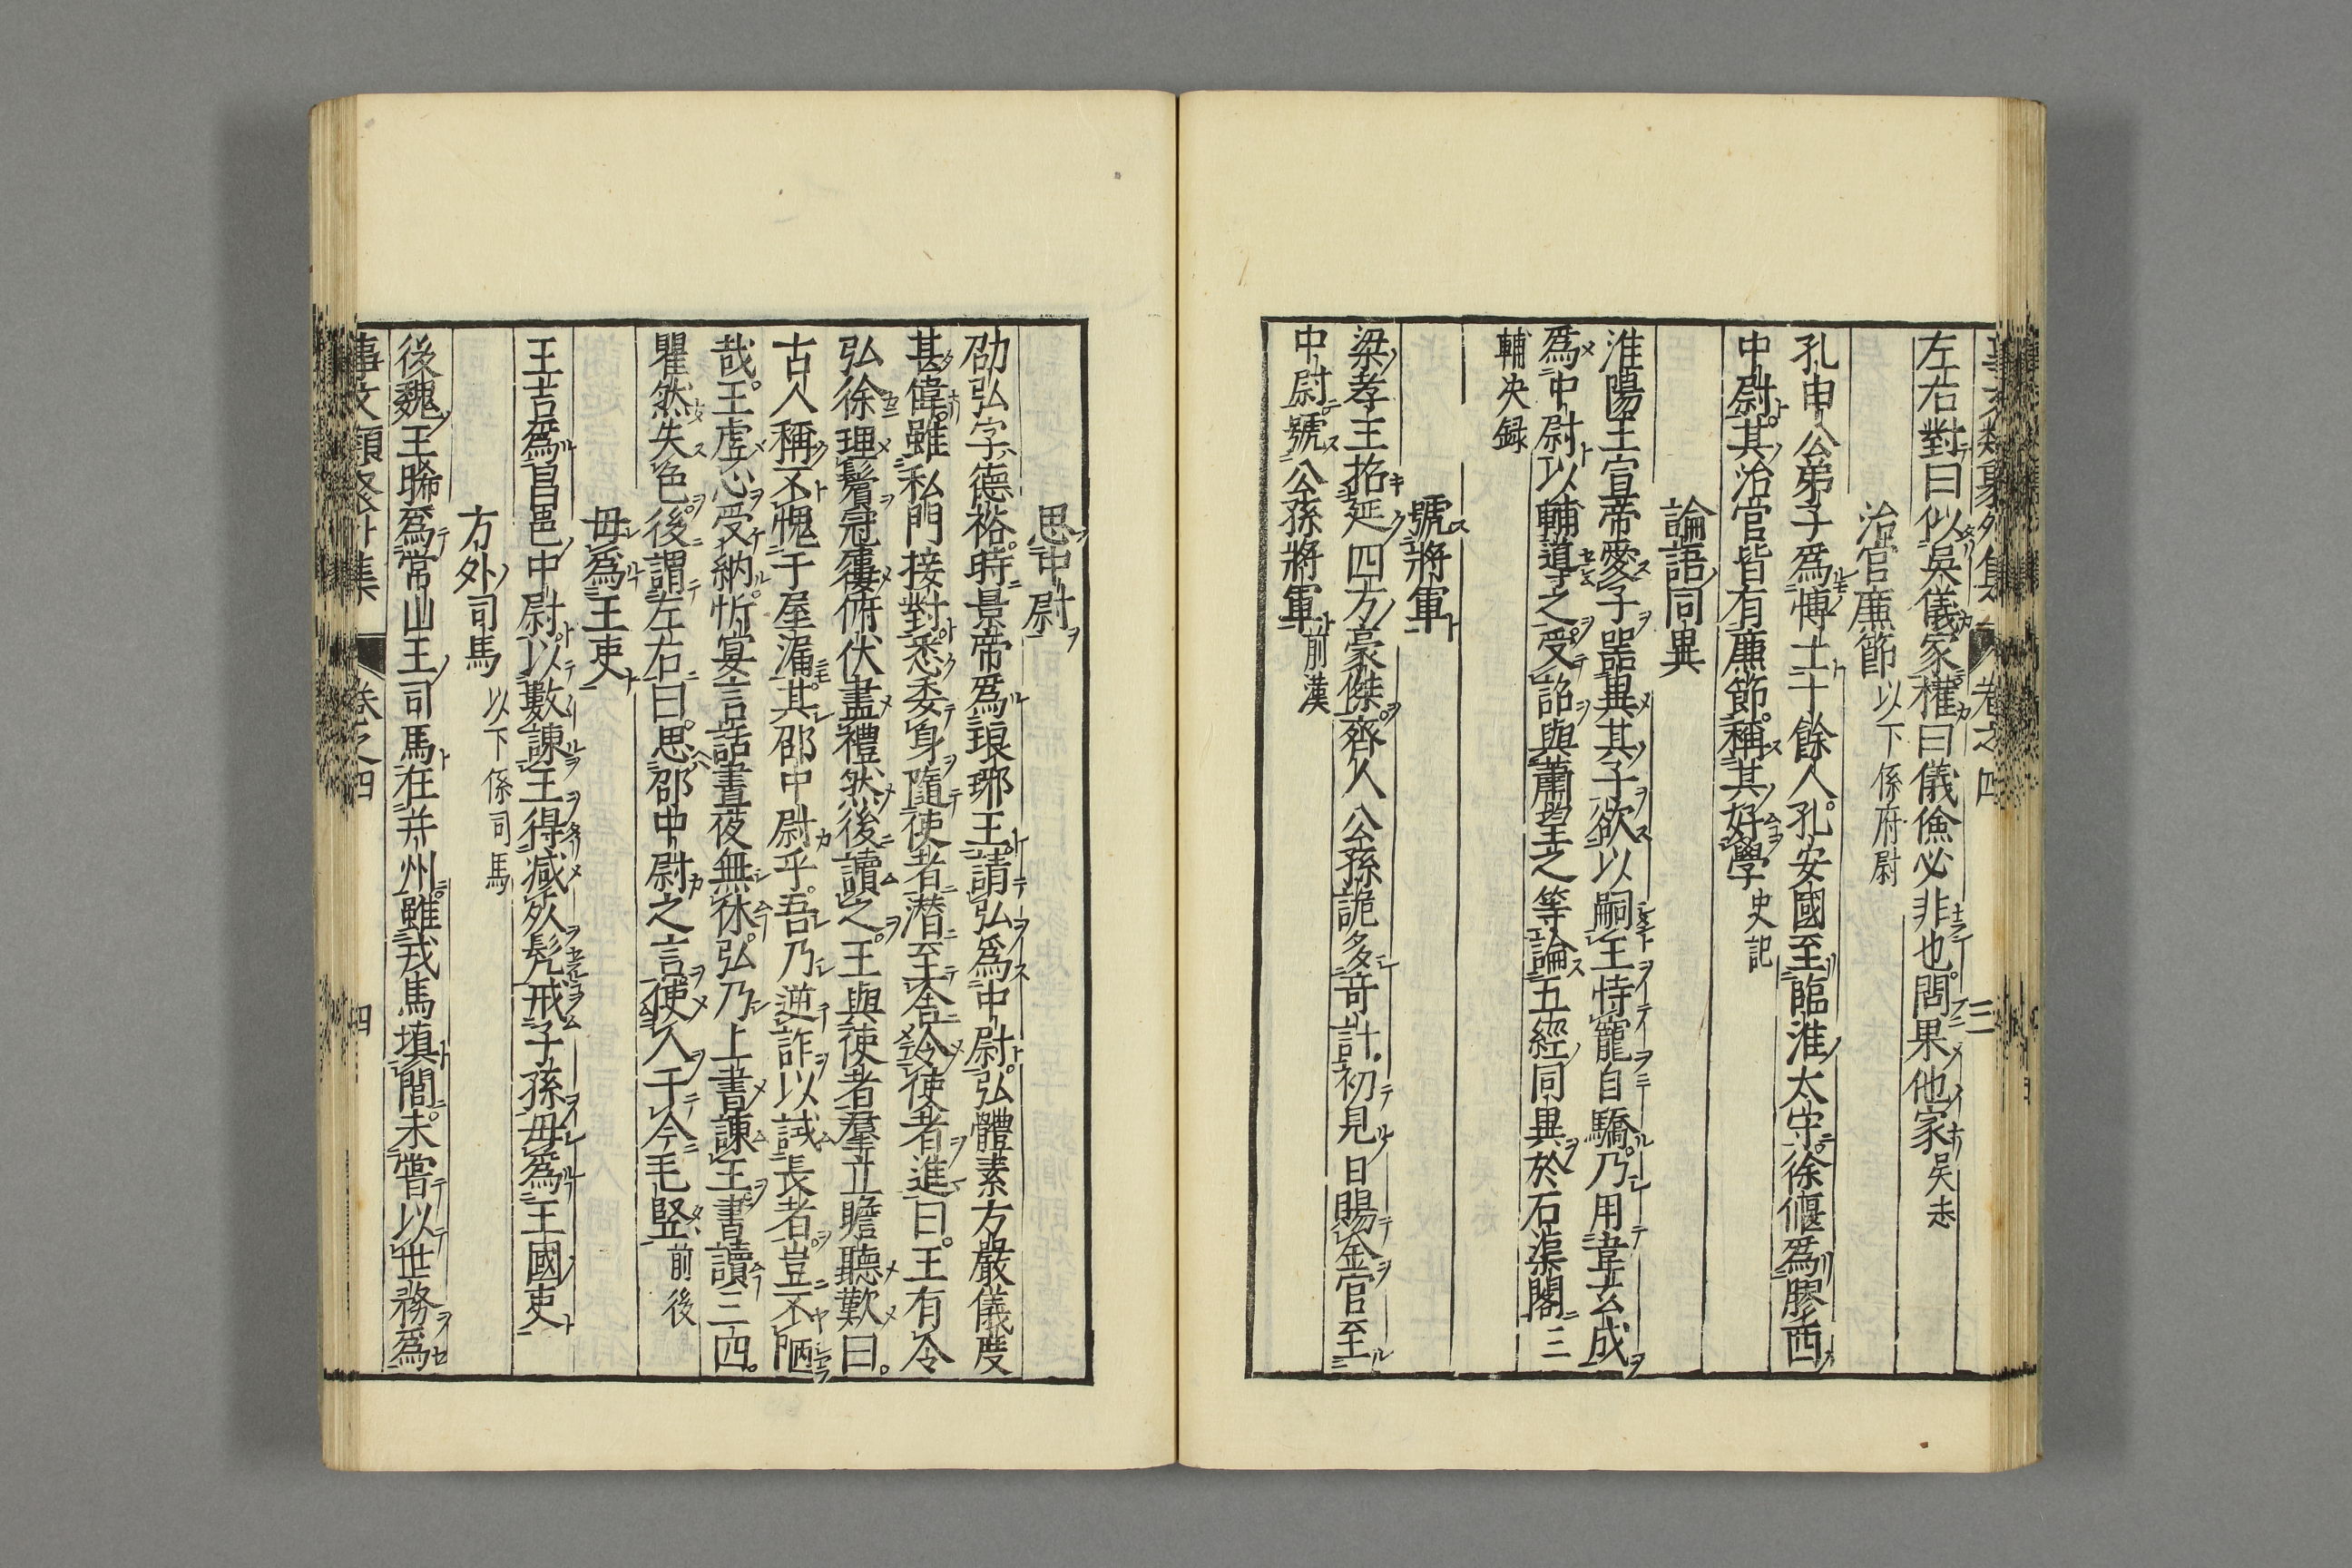 事文類聚外集 卷之四 三
左右對曰似吳儀家權曰儀儉必非也問果他家 吳志
治官廉節 以下係府尉
孔申公弟子爲博士十餘人孔安國至臨淮太守徐偃爲膠西
中尉其治官皆有廉節稱其好學 史記
論語同異
淮陽王宣帝愛子器異其子欲以嗣王恃寵自驕乃用韋玄成
爲中尉以輔道之受詔與蕭望之等論五經同異於石渠閣 三
輔决録
號將軍
梁孝王招延四方豪傑齊人公孫詭多奇計初見日賜金官至
中尉號公孫將軍 前漢
思中尉
邵弘字德裕時景帝爲琅琊王請弘爲中尉弘體素方嚴儀度
甚偉雖私門接對悉委身隨使者潜至舍令使者進曰王有令
弘徐理鬢冠履俯伏盡禮然後讀之王與使者羣立瞻聽歎曰
古人稱不愧于屋漏其邵中尉乎吾乃逆詐以試長者豈不陋
哉王虚心受納忻宴言話晝夜無休弘乃上書諫王書讀三四
瞿然失色後謂左右曰思邵中尉之言使人于今毛竪 前後
毋爲王吏
王吉爲昌邑中尉以數諫王得减死髡戒子孫毋爲王國吏
方外司馬 以下係司馬
後魏王晞爲常山王司馬在并州雖戎馬填閭未嘗以世務爲
事文類聚外集 卷之四 四